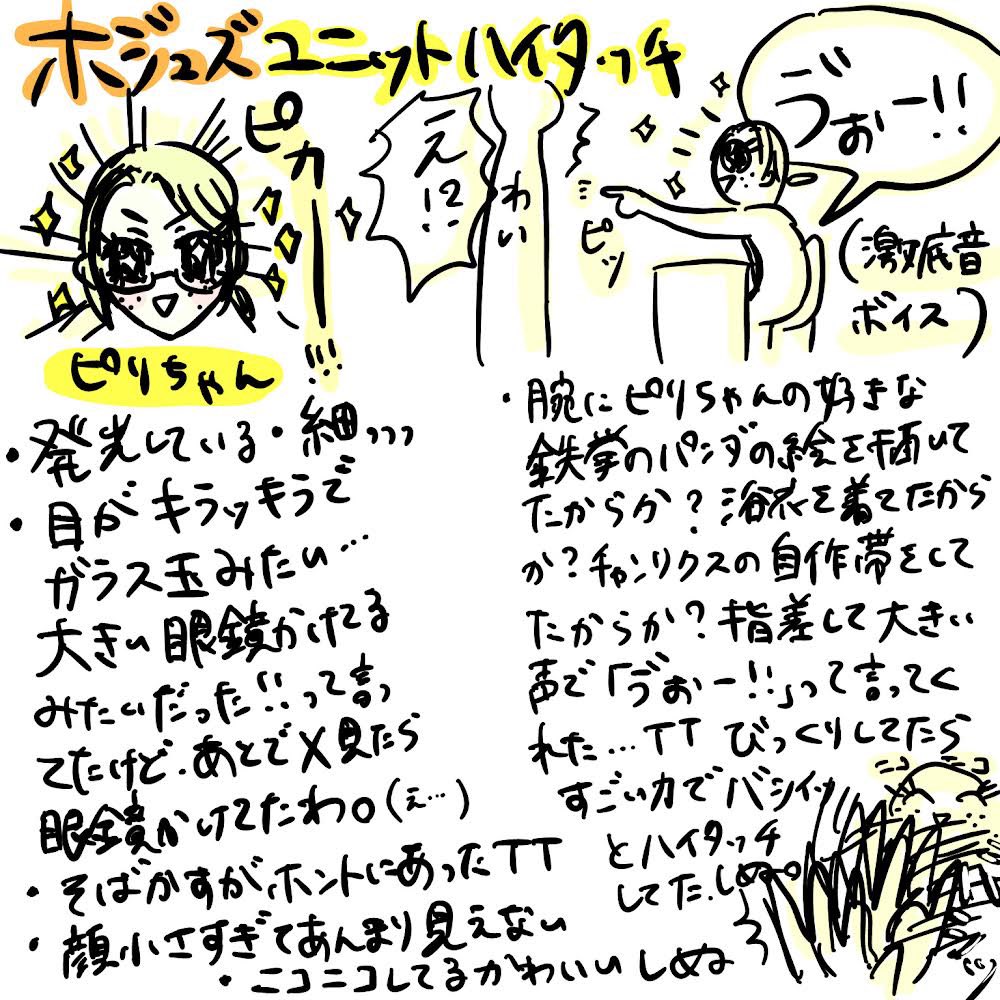 ホジュズユニットハイタッチ
ピカー!!!
え!?
わい
ピッ
ゔぉー!!
(激底音
ボイス)
ピリちゃん
・発光している・細っっっ
・目がキラッキラで
ガラス玉みたい…
大きい眼鏡かけてる
みたいだった!!って言っ
てたけど、あとでX見たら
眼鏡かけてたわ。(え…)
・そばかすがホントにあったTT
・顔小さすぎてあんまり見えない
・ニコニコしてるかわいいしぬ
・腕にピリちゃんの好きな
鉄拳のパンダの絵を描いて
たからか?浴衣を着てたから
か?チャンリクスの自作帯をして
たからか?指差して大きい
声で「ゔぉー!!」って言ってく
れた…TT びっくりしてたら
すごい力でバシィッ
とハイタッチ
してた。しぬ。
ニコニコ